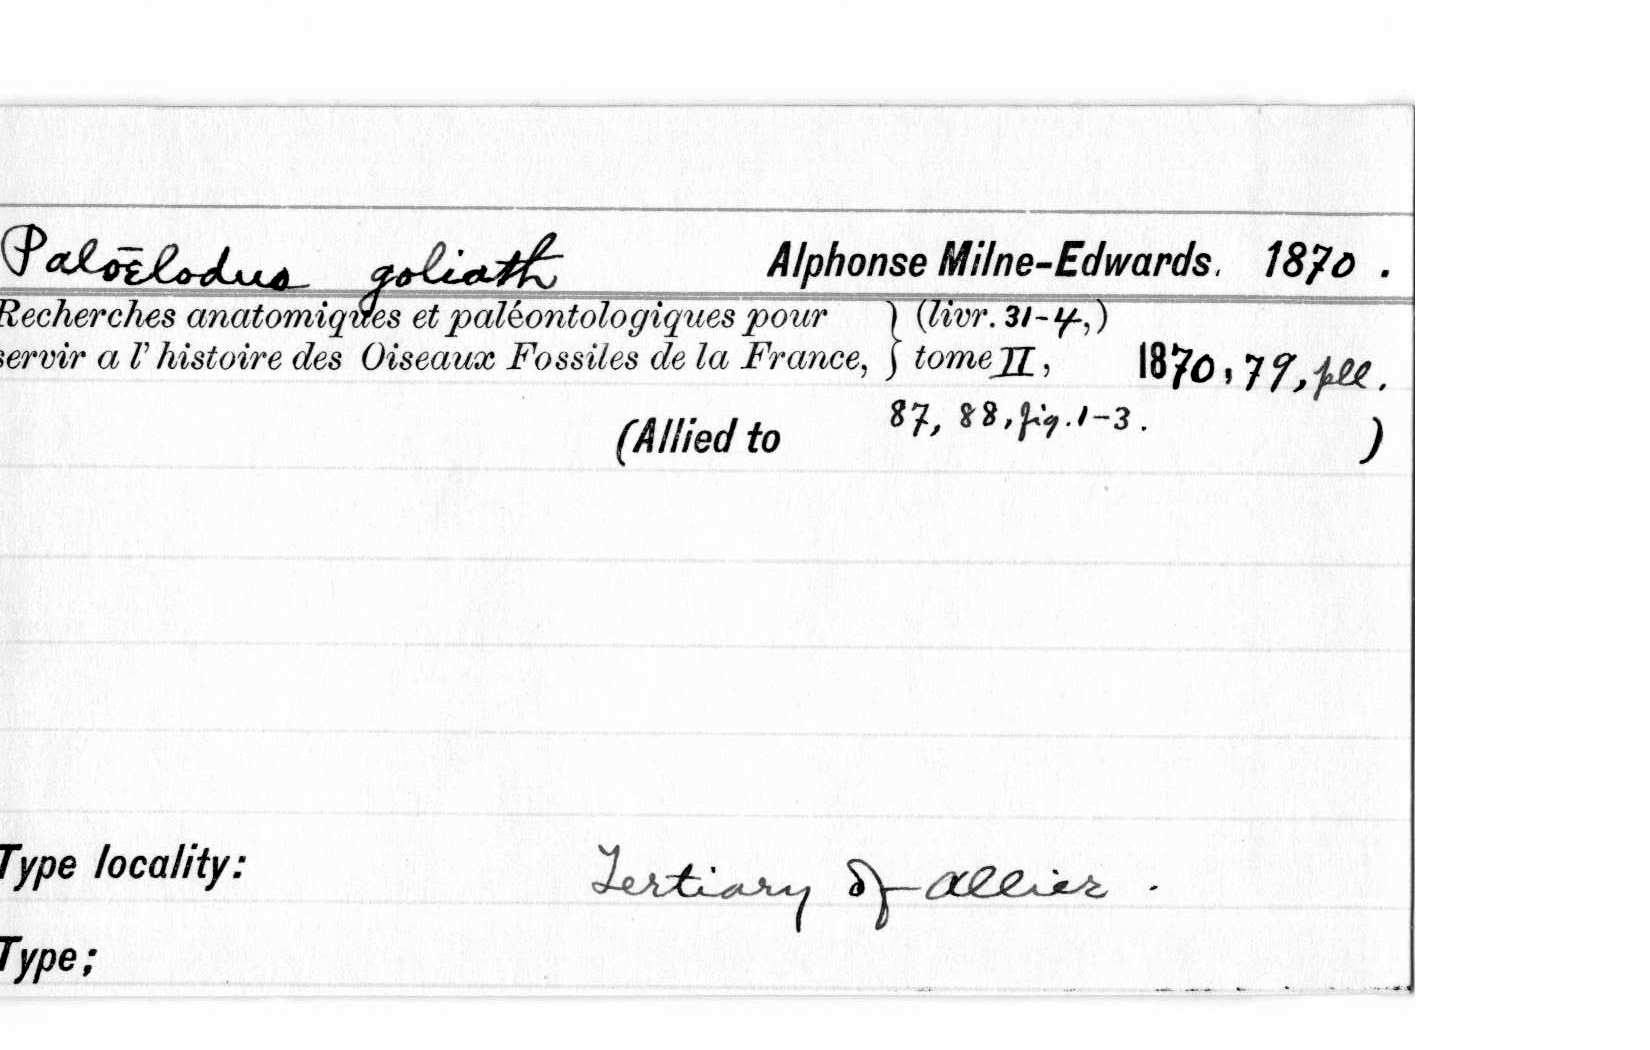 Palōĕlodus goliath Alphonse Milne-Edwards. 1870.
Recherches anatomiques et paléontologiques pour } (livr. 31-4,)
servir a l'histoire des Oiseaux Fossiles de la France, } tome II, 1870, 79, pll.
87, 88, fig. 1-3.
(Allied to )
Type locality: Tertiary of Allier.
Type;